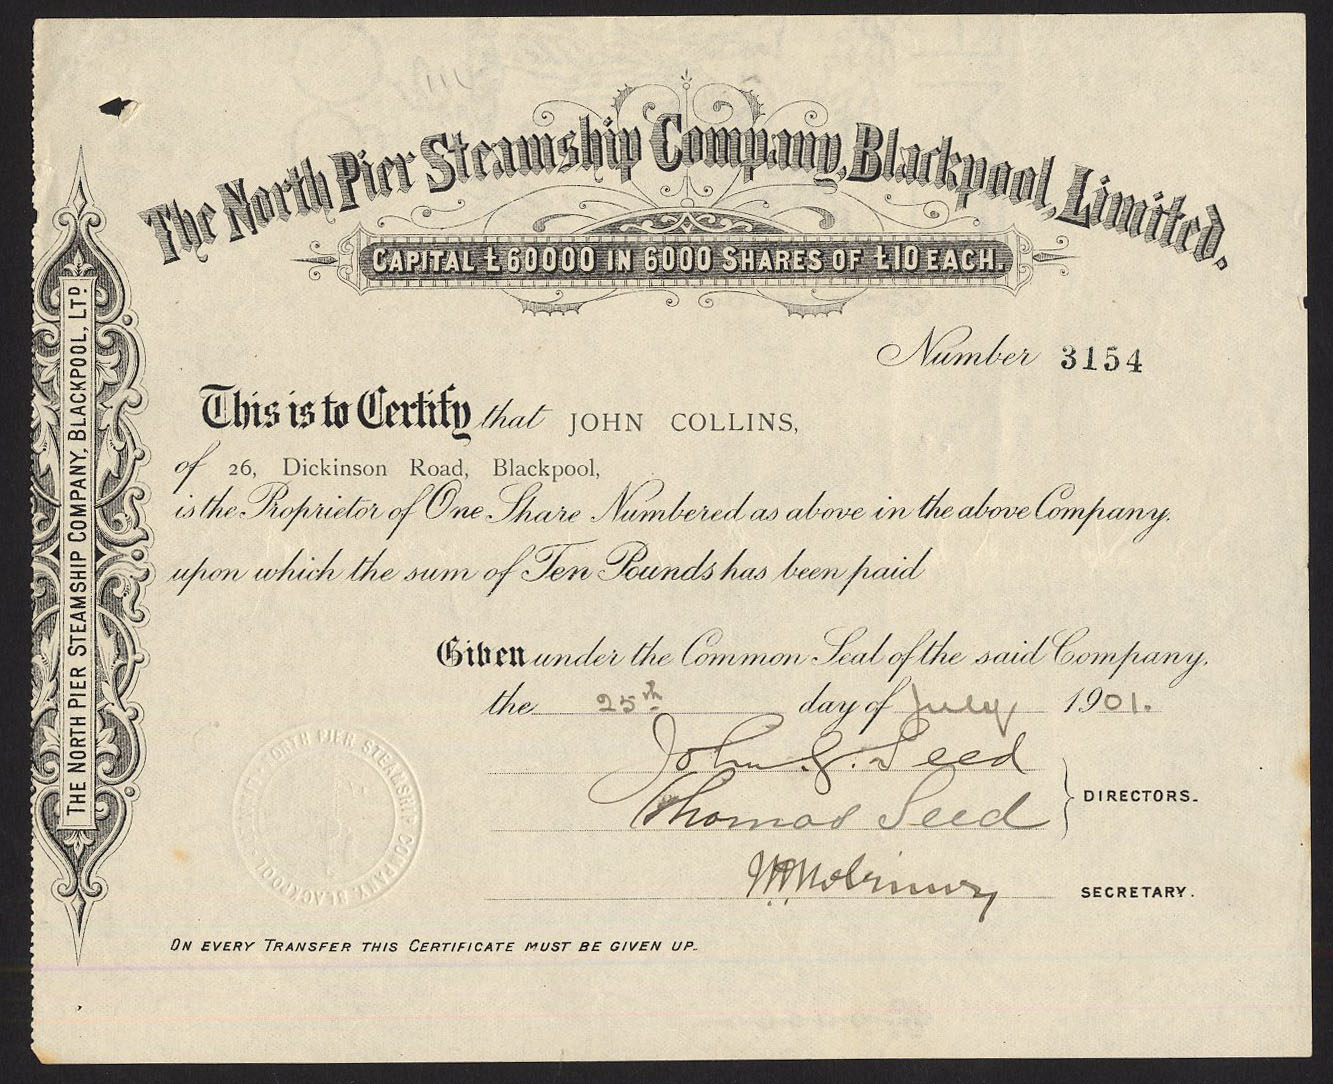 The North Pier Steamship Company, Blackpool, Limited.
CAPITAL £60000 IN 6000 SHARES OF £10 EACH.
Number 3154
This is to Certify that JOHN COLLINS,
of 26, Dickinson Road, Blackpool,
is the Proprietor of One Share Numbered as above in the above Company.
upon which the sum of Ten Pounds has been paid
Given under the Common Seal of the said Company,
the 25th day of July 1901.
John J. Seed
Thomas Seed
DIRECTORS.
SECRETARY.
ON EVERY TRANSFER THIS CERTIFICATE MUST BE GIVEN UP.
THE NORTH PIER STEAMSHIP COMPANY, BLACKPOOL, LTD.
NORTH PIER STEAMSHIP COMPANY, BLACKPOOL